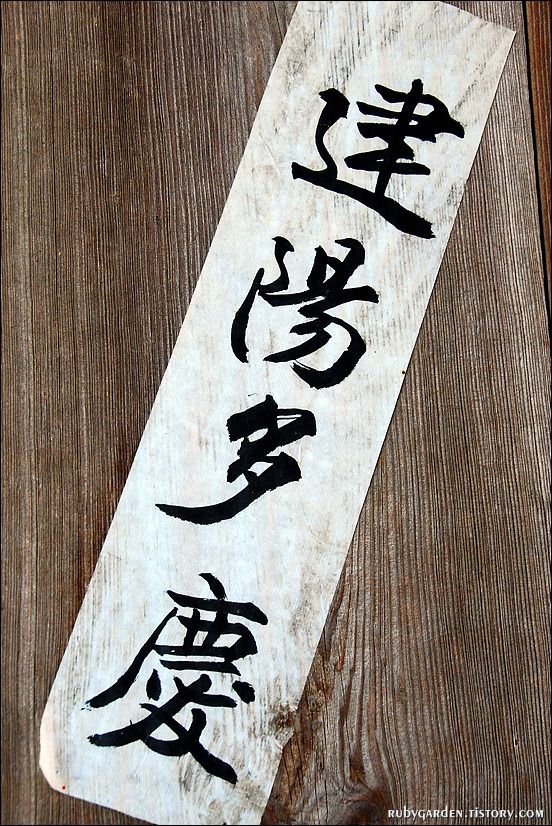 建陽多慶
RUBYGARDEN.TISTORY.COM